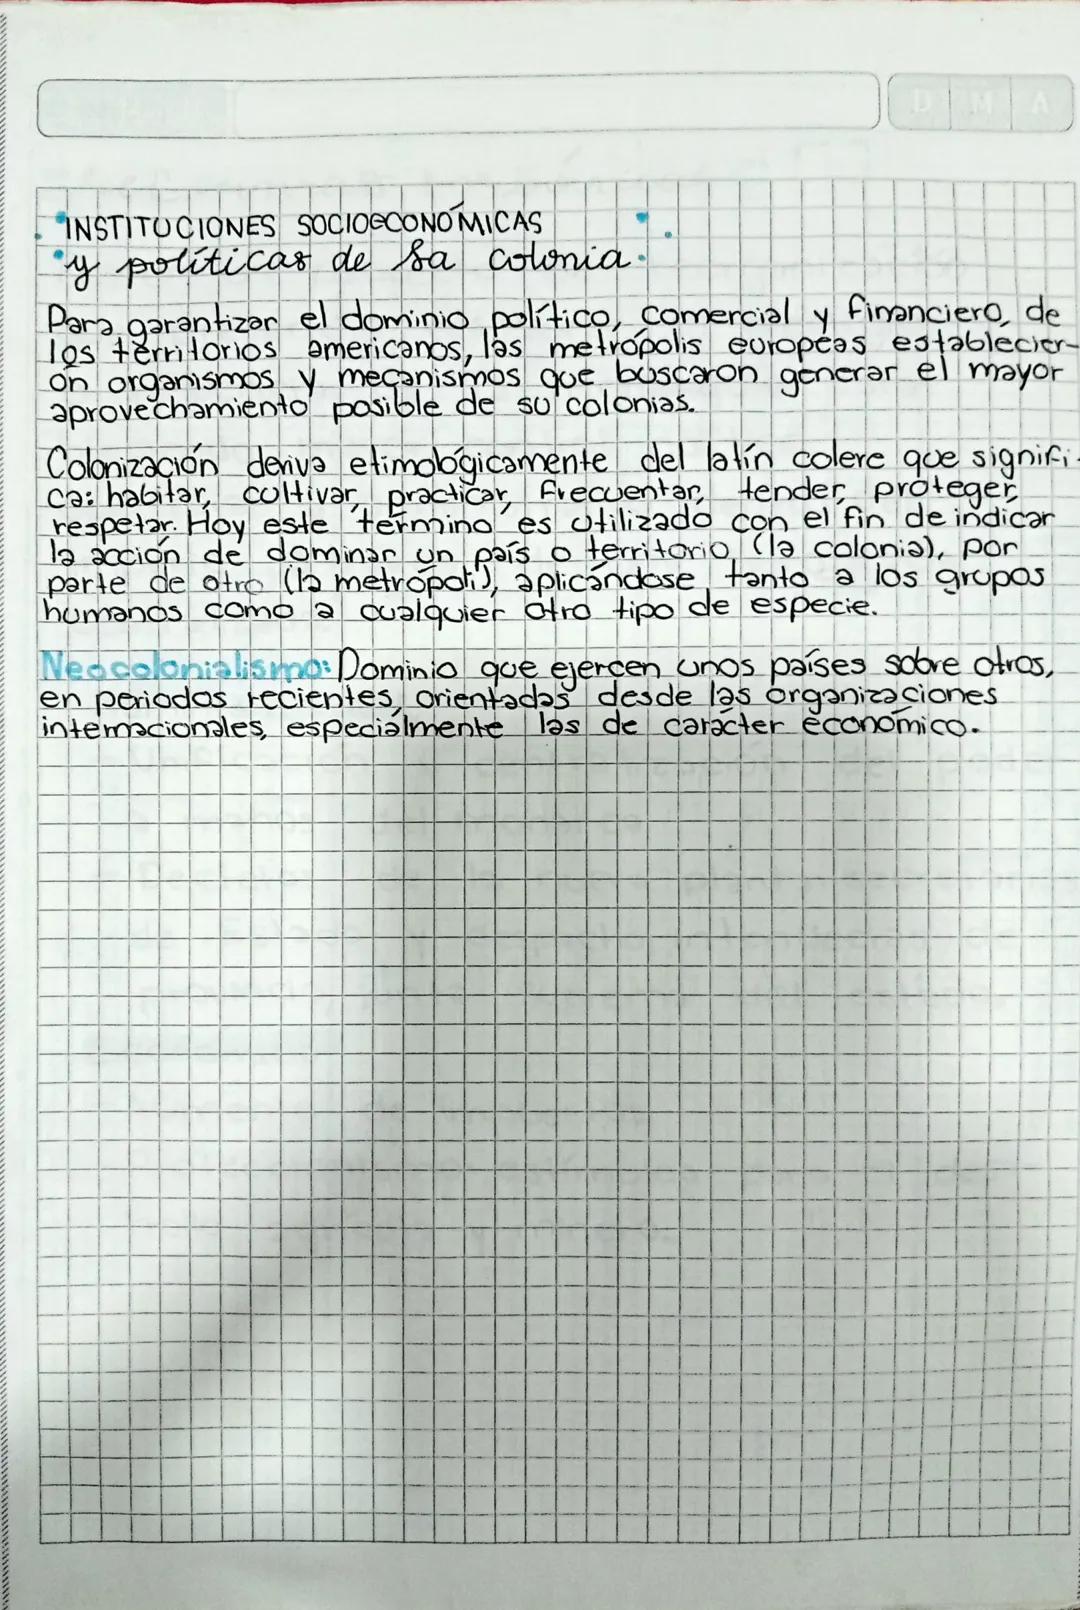 D M A
INSTITUCIONES SOCIOECONÓMICAS
y políticas de la colonia.
Para garantizar el dominio político, comercial y financiero, de
los territorios americanos, las metrópolis europeas establecier-
on organismos y mecanismos que buscaron generar el mayor
aprovechamiento posible de su colonias.
Colonización deriva etimológicamente del latín colere que signifi-
ca: habitar, cultivar, practicar, frecuentar, tender, proteger,
respetar. Hoy este término es utilizado con el fin de indicar
la acción de dominar un país o territorio, (la colonia), por
parte de otro (la metrópoli), aplicándose tanto a los grupos
humanos como a cualquier otro tipo de especie.
Neocolonialismo: Dominio que ejercen unos países sobre otros,
en periodos recientes, orientadas desde las organizaciones
internacionales, especiálmente las de carácter económico.